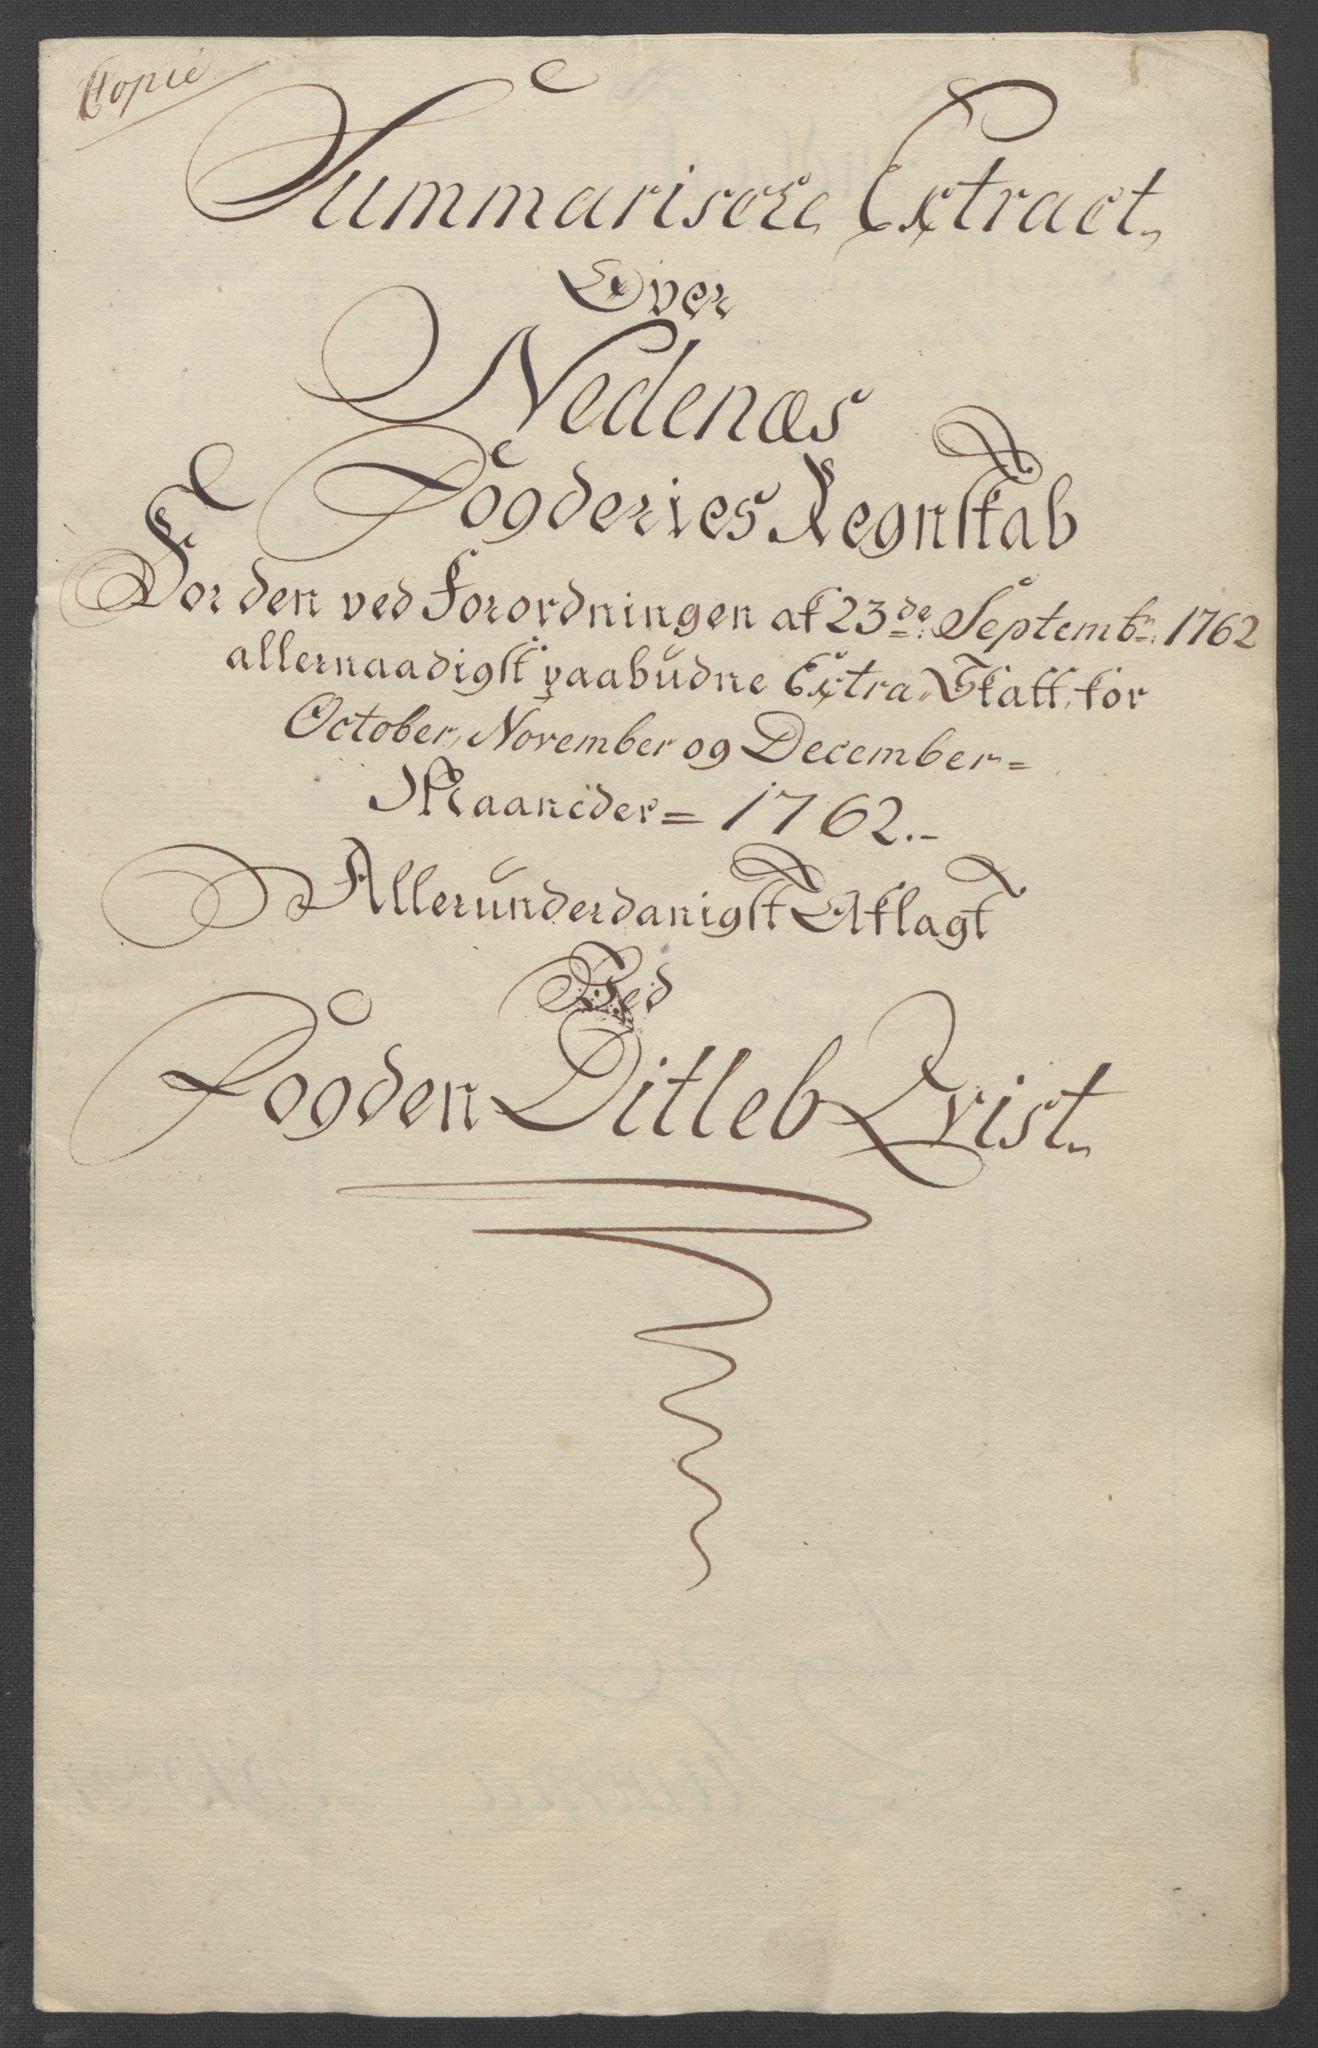 Copie
Summariske Extract
Over
Nedenæs
Fogderies Regnskab
For den ved Forordningen af 23de Septembr: 1762
allernaadigst paabudne Extra Skatt, for
October, November og December =
Maaneder = 1762. -
Allerunderdanigst Aflagt
Ved
Fogden Ditleb Qvist